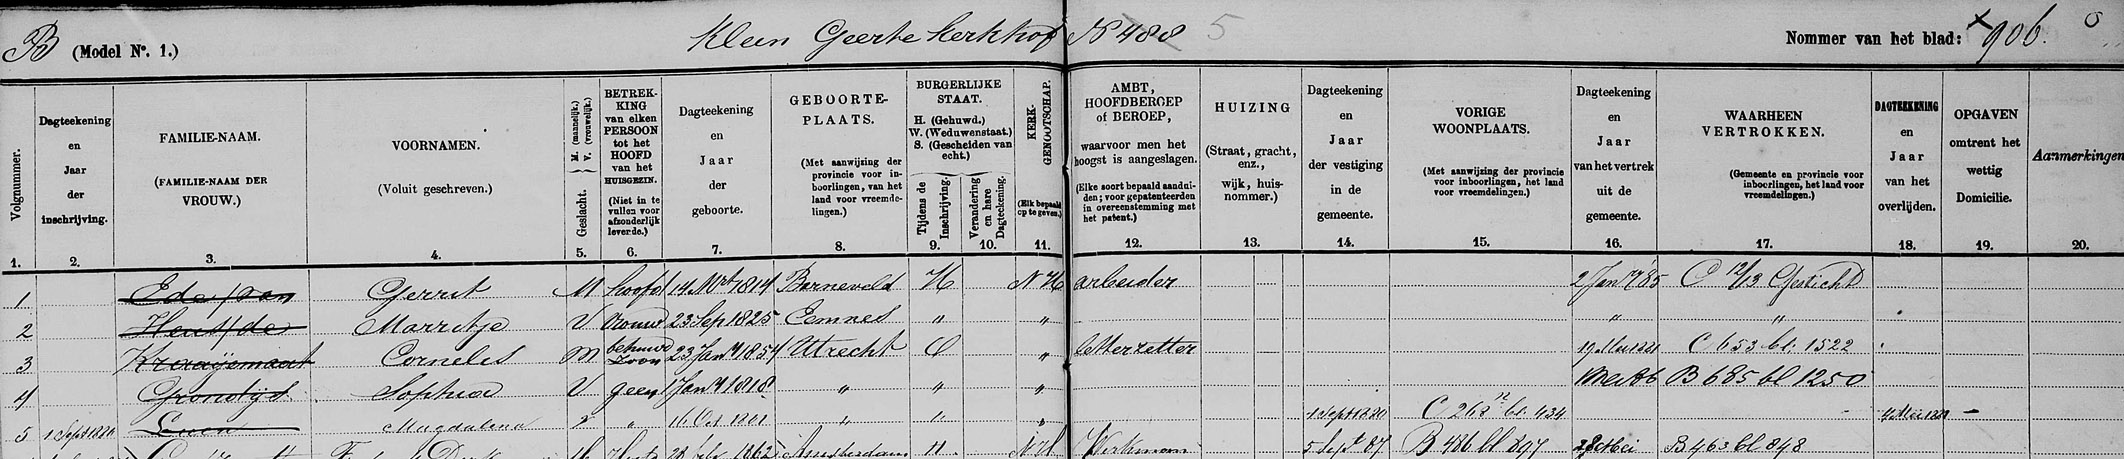 B (Model No. 1.) Klein Geerte Kerkhof No 488 5 Nommer van het blad: 906.
Volgnummer. 1.
Dagteekening en Jaar der inschrijving. 2.
FAMILIE-NAAM. (FAMILIE-NAAM DER VROUW.) 3.
VOORNAMEN. (Voluit geschreven.) 4.
Geslacht. M. (mannelijk.) V. (vrouwelijk.) 5.
BETREKKING van elken PERSOON tot het HOOFD van het HUISGEZIN. (Niet in te vullen voor afzonderlijk levende.) 6.
Dagteekening en Jaar der geboorte. 7.
GEBOORTE-PLAATS. (Met aanwijzing der provincie voor inboorlingen, van het land voor vreemdelingen.) 8.
BURGERLIJKE STAAT. H. (Gehuwd.) W. (Weduwenstaat.) S. (Gescheiden van echt.)
Tijdens de Inschrijving. 9.
Verandering en hare Dagteekening. 10.
KERK-GENOOTSCHAP. (Elk bepaald op te geven.) 11.
AMBT, HOOFDBEROEP of BEROEP, waarvoor men het hoogst is aangeslagen. (Elke soort bepaald aanduiden; voor gepatenteerden in overeenstemming met het patent.) 12.
HUIZING (Straat, gracht, enz., wijk, huisnommer.) 13.
Dagteekening en Jaar der vestiging in de gemeente. 14.
VORIGE WOONPLAATS. (Met aanwijzing der provincie voor inboorlingen, het land voor vreemdelingen.) 15.
Dagteekening en Jaar van het vertrek uit de gemeente. 16.
WAARHEEN VERTROKKEN. (Gemeente en provincie voor inboorlingen, het land voor vreemdelingen.) 17.
DAGTEEKENING en Jaar van het overlijden. 18.
OPGAVEN omtrent het wettig Domicilie. 19.
Aanmerkingen 20.
1 Ede, van Gerrit M hoofd 14 Mrt 1814 Barneveld H NH arbeider 2 Jany 85 C 12/13 Gesticht
2 Heus, de Marritje V vrouw 23 Sep 1825 Eemnes " " " "
3 Kraaijemaat Cornelis M behuwd zoon 23 Jany 1854 Utrecht O " letterzetter 19 C 653 bl. 1522
4 Grondijs Sophia V geen 1 Jany 1818 " " " B 685 bl 1250
5 1 Sept 1880 Magdalena " " 16 Oct 1801 " " " 1 Sept 1880 C 268 bl. 434 4 Mei —
28 feb. 1862 Amsterdam H NH Werkman 5 Sept 87 B 486 bl 897 Mei B 463 bl 848